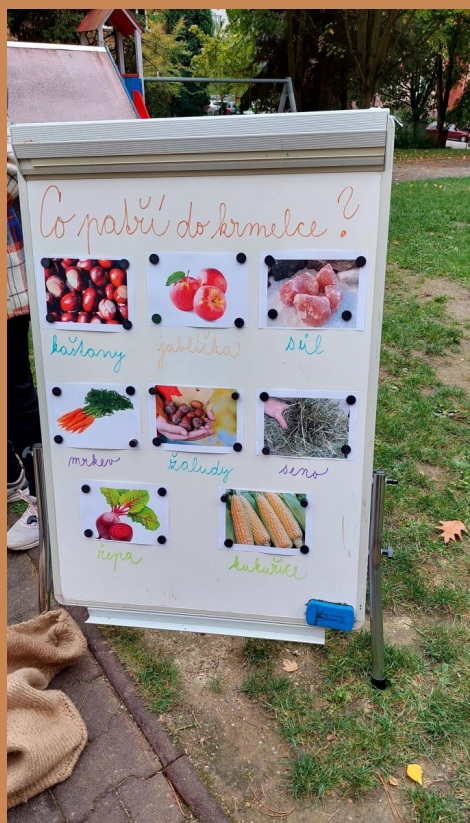 Co patří do krmelce?
kaštany jablíčka sůl
mrkev žaludy seno
řepa kukuřice